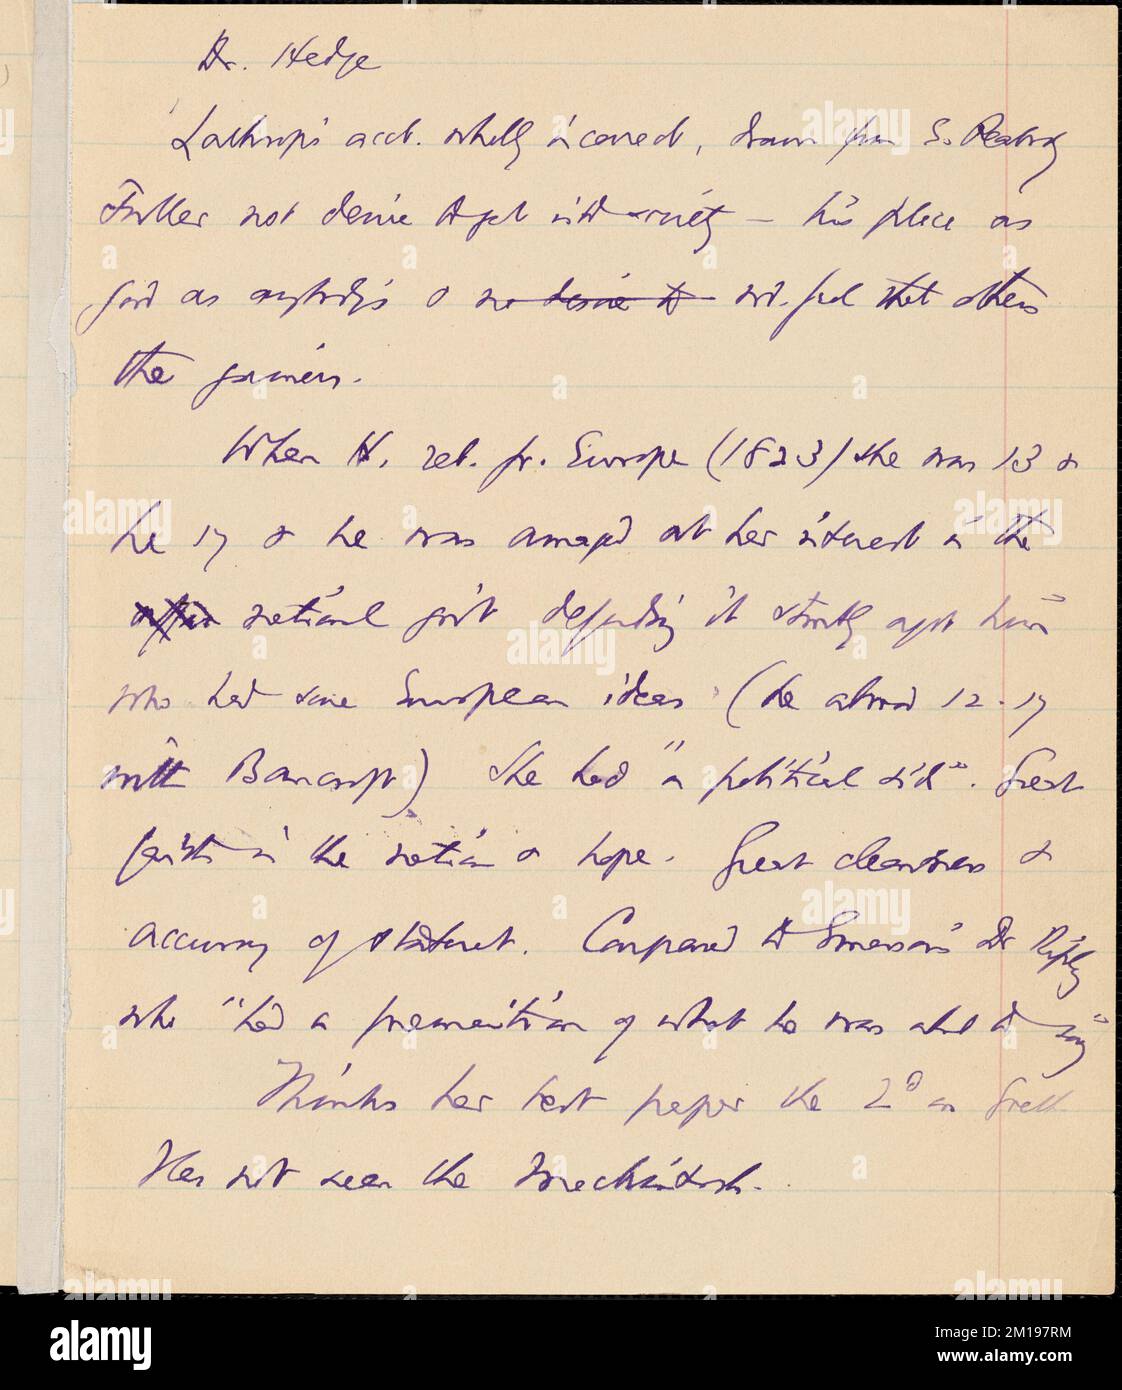 Dr. Hedge
Lathrop's acct. wholly incorrect, drawn from S. Peabody
Fuller not desire to get into society – his place as
good as anybody's & no desire to not feel that others
the gainers.
When H. ret. fr. Europe (1823) she was 13 &
he 17 & he was amazed at her interest in the
national gov't defending it stoutly agst him
who had some European ideas (he abroad 12-17
with Bancroft) She had "a political side". Great
faith in the nation & hope. Great clearness &
accuracy of statemt. Compared to Emerson's Dr Ripley
who "had a premonition of what he was abt to say"
Thinks her best paper the 2d on Goethe
Has not seen the Mackintosh.
alamy
Image ID: 2M197RM
www.alamy.com